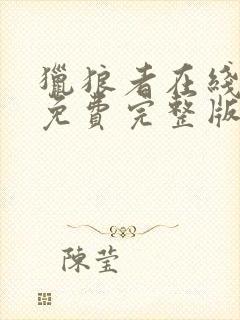 獵狼者在綫
免費完整版
陳瑩